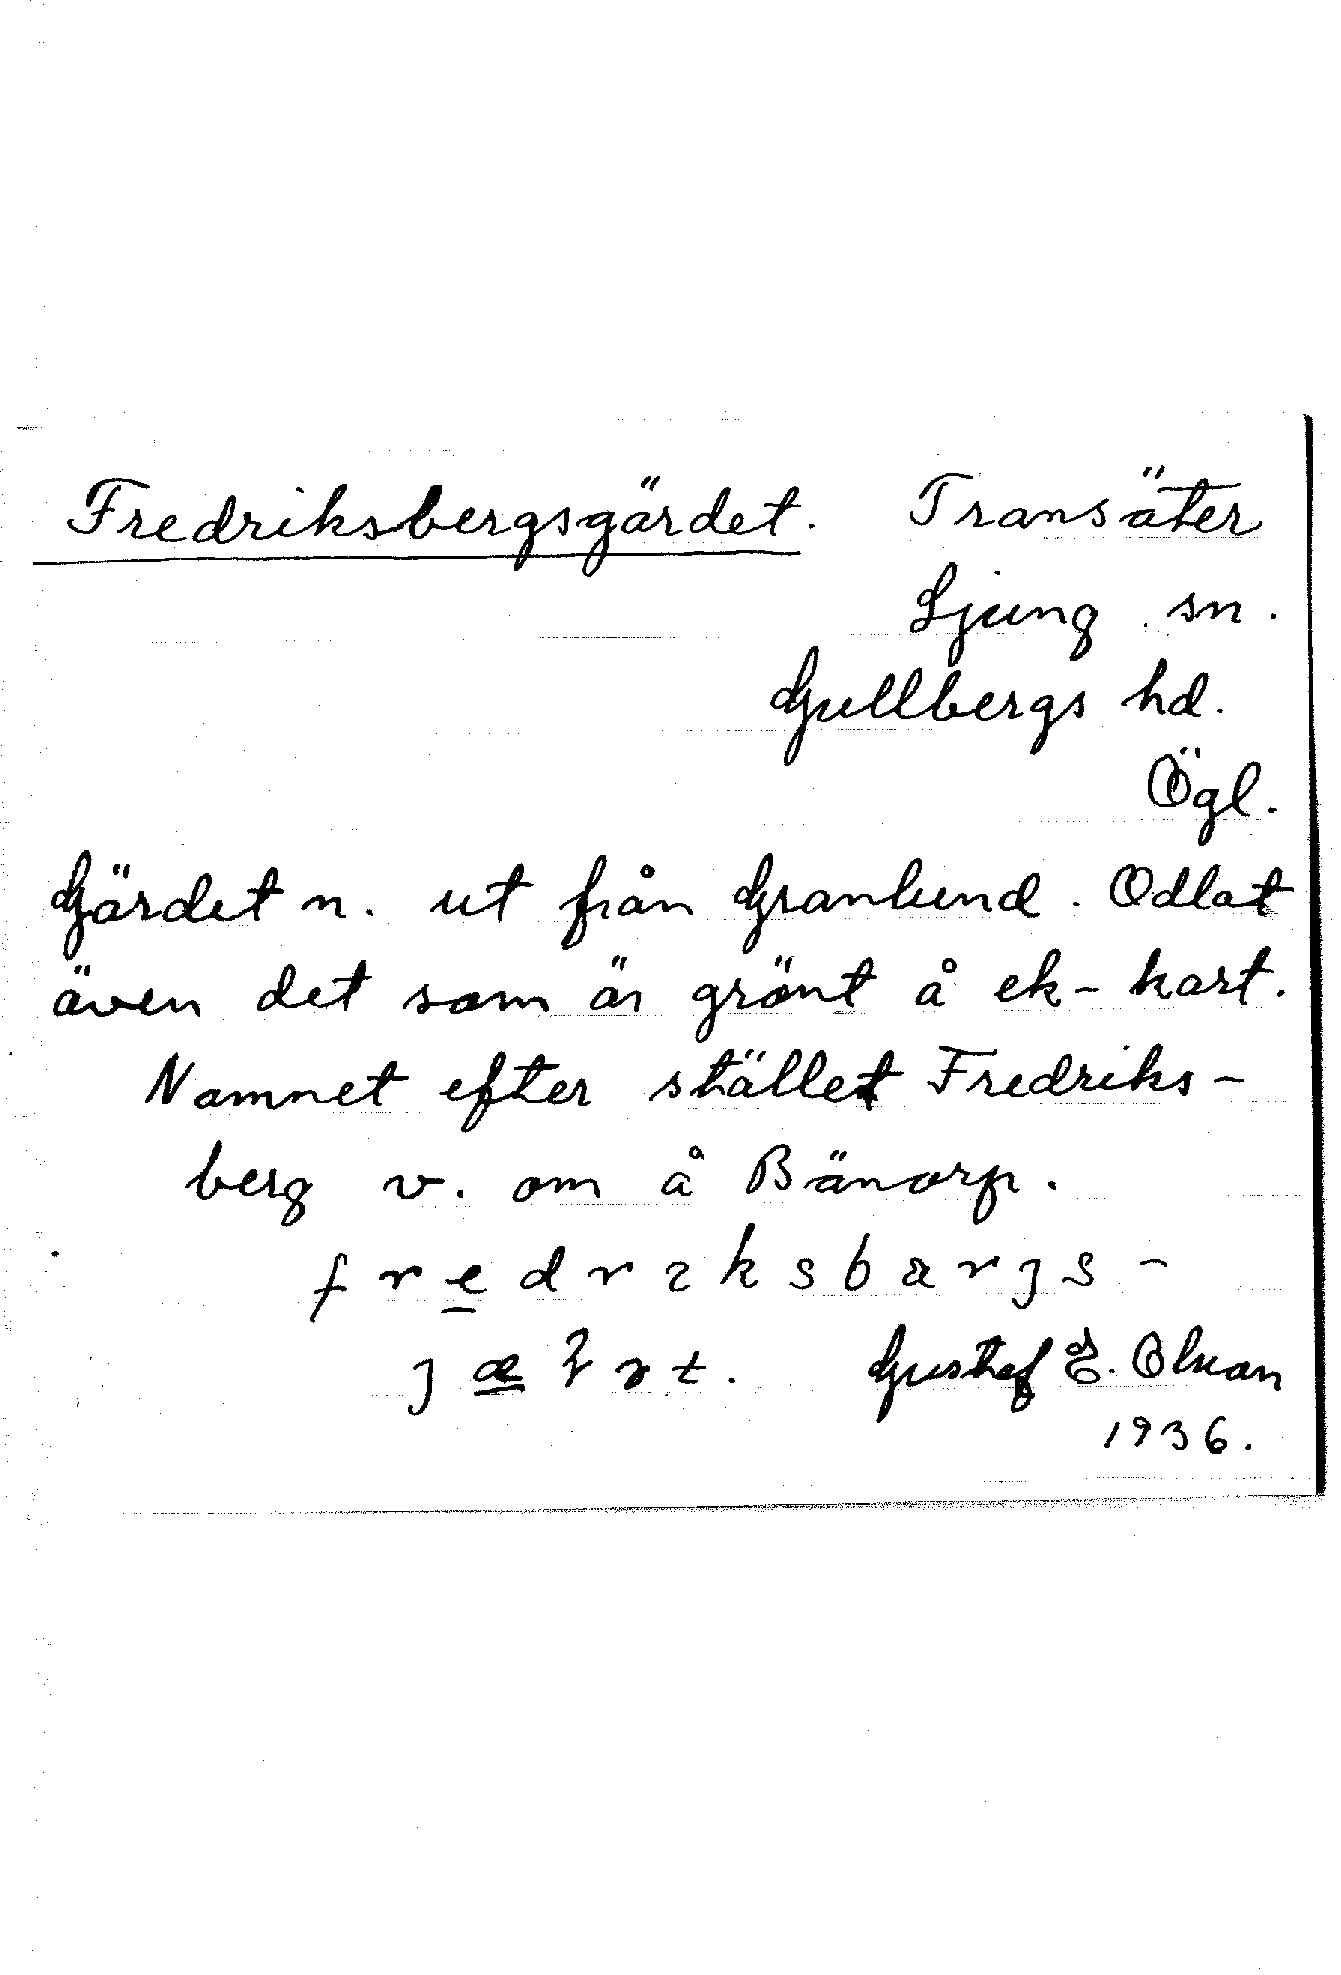 Fredriksbergsgärdet. Transäter
Ljung sn.
Gullbergs hd.
Ögl.
Gärdet n. ut från Granlund. Odlat
även det som är grönt å ek-kart.
Namnet efter stället Fredriks-
berg v. om å Bänorp.
fredrɩksbærjs-
jæ t.
Gustaf E. Olson
1936.